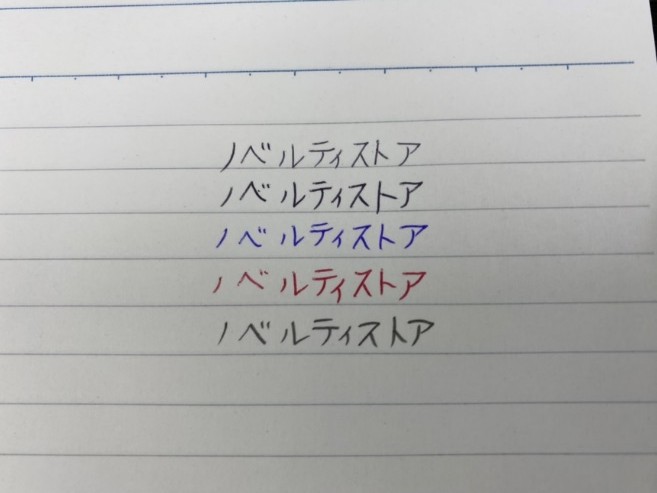 ノベルティストア
ノベルティストア
ノベルティストア
ノベルティストア
ノベルティストア